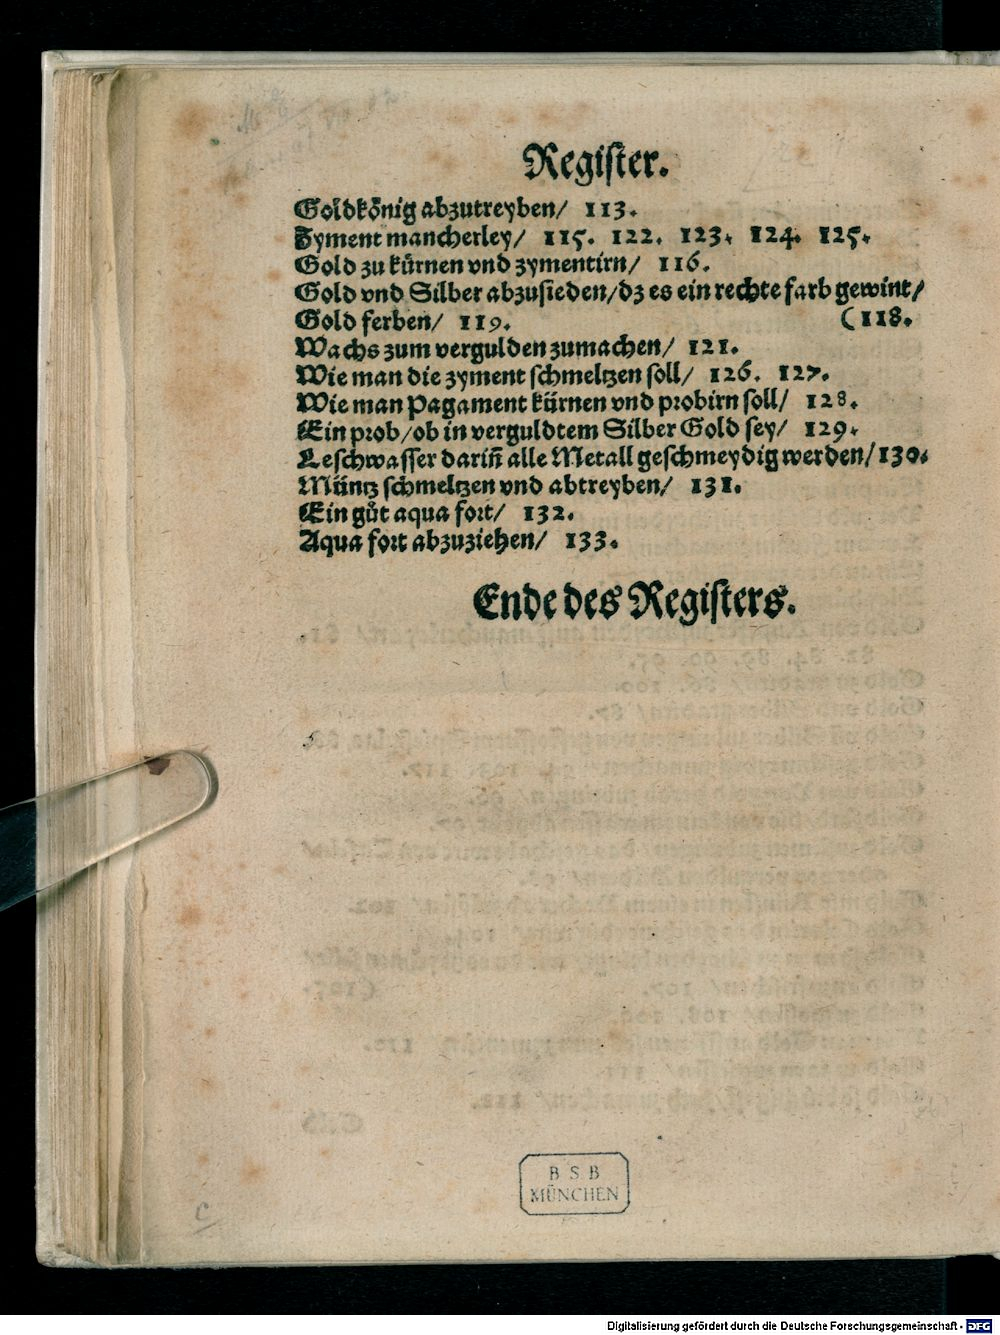 Register.
Goldkönig abzutreyben/ 113.
Zyment mancherley/ 115. 122. 123. 124. 125.
Gold zu kürnen vnd zymentirn/ 116.
Gold vnd Silber abzusieden/dz es ein rechte farb gewint/
Gold ferben/ 119. (118.
Wachs zum vergulden zumachen/ 121.
Wie man die zyment schmeltzen soll/ 126. 127.
Wie man Pagament kürnen vnd probirn soll/ 128.
Ein prob/ob in verguldtem Silber Gold sey/ 129.
Leschwasser dariñ alle Metall geschmeydig werden/130.
Müntz schmeltzen vnd abtreyben/ 131.
Ein gůt aqua fort/ 132.
Aqua fort abzuziehen/ 133.
Ende des Registers.
B S B
MÜNCHEN
Digitalisierung gefördert durch die Deutsche Forschungsgemeinschaft - DFG